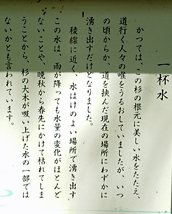 一杯水
かつては、この杉の根元に美しい水をたたえ、
道行く人々の喉をうるおしていましたが、いつ
の頃からか、道を挟んだ現在の場所にわずかに
湧き出すだけとなりました。
稜線に近く、水はけのよい場所で湧き出す
この水は、雨が降っても水量の変化がほとんど
ないことや、晩秋から春先にかけて枯れてしま
うことから、杉の大木が吸い上げた水の一部では
ないかとも言われています。